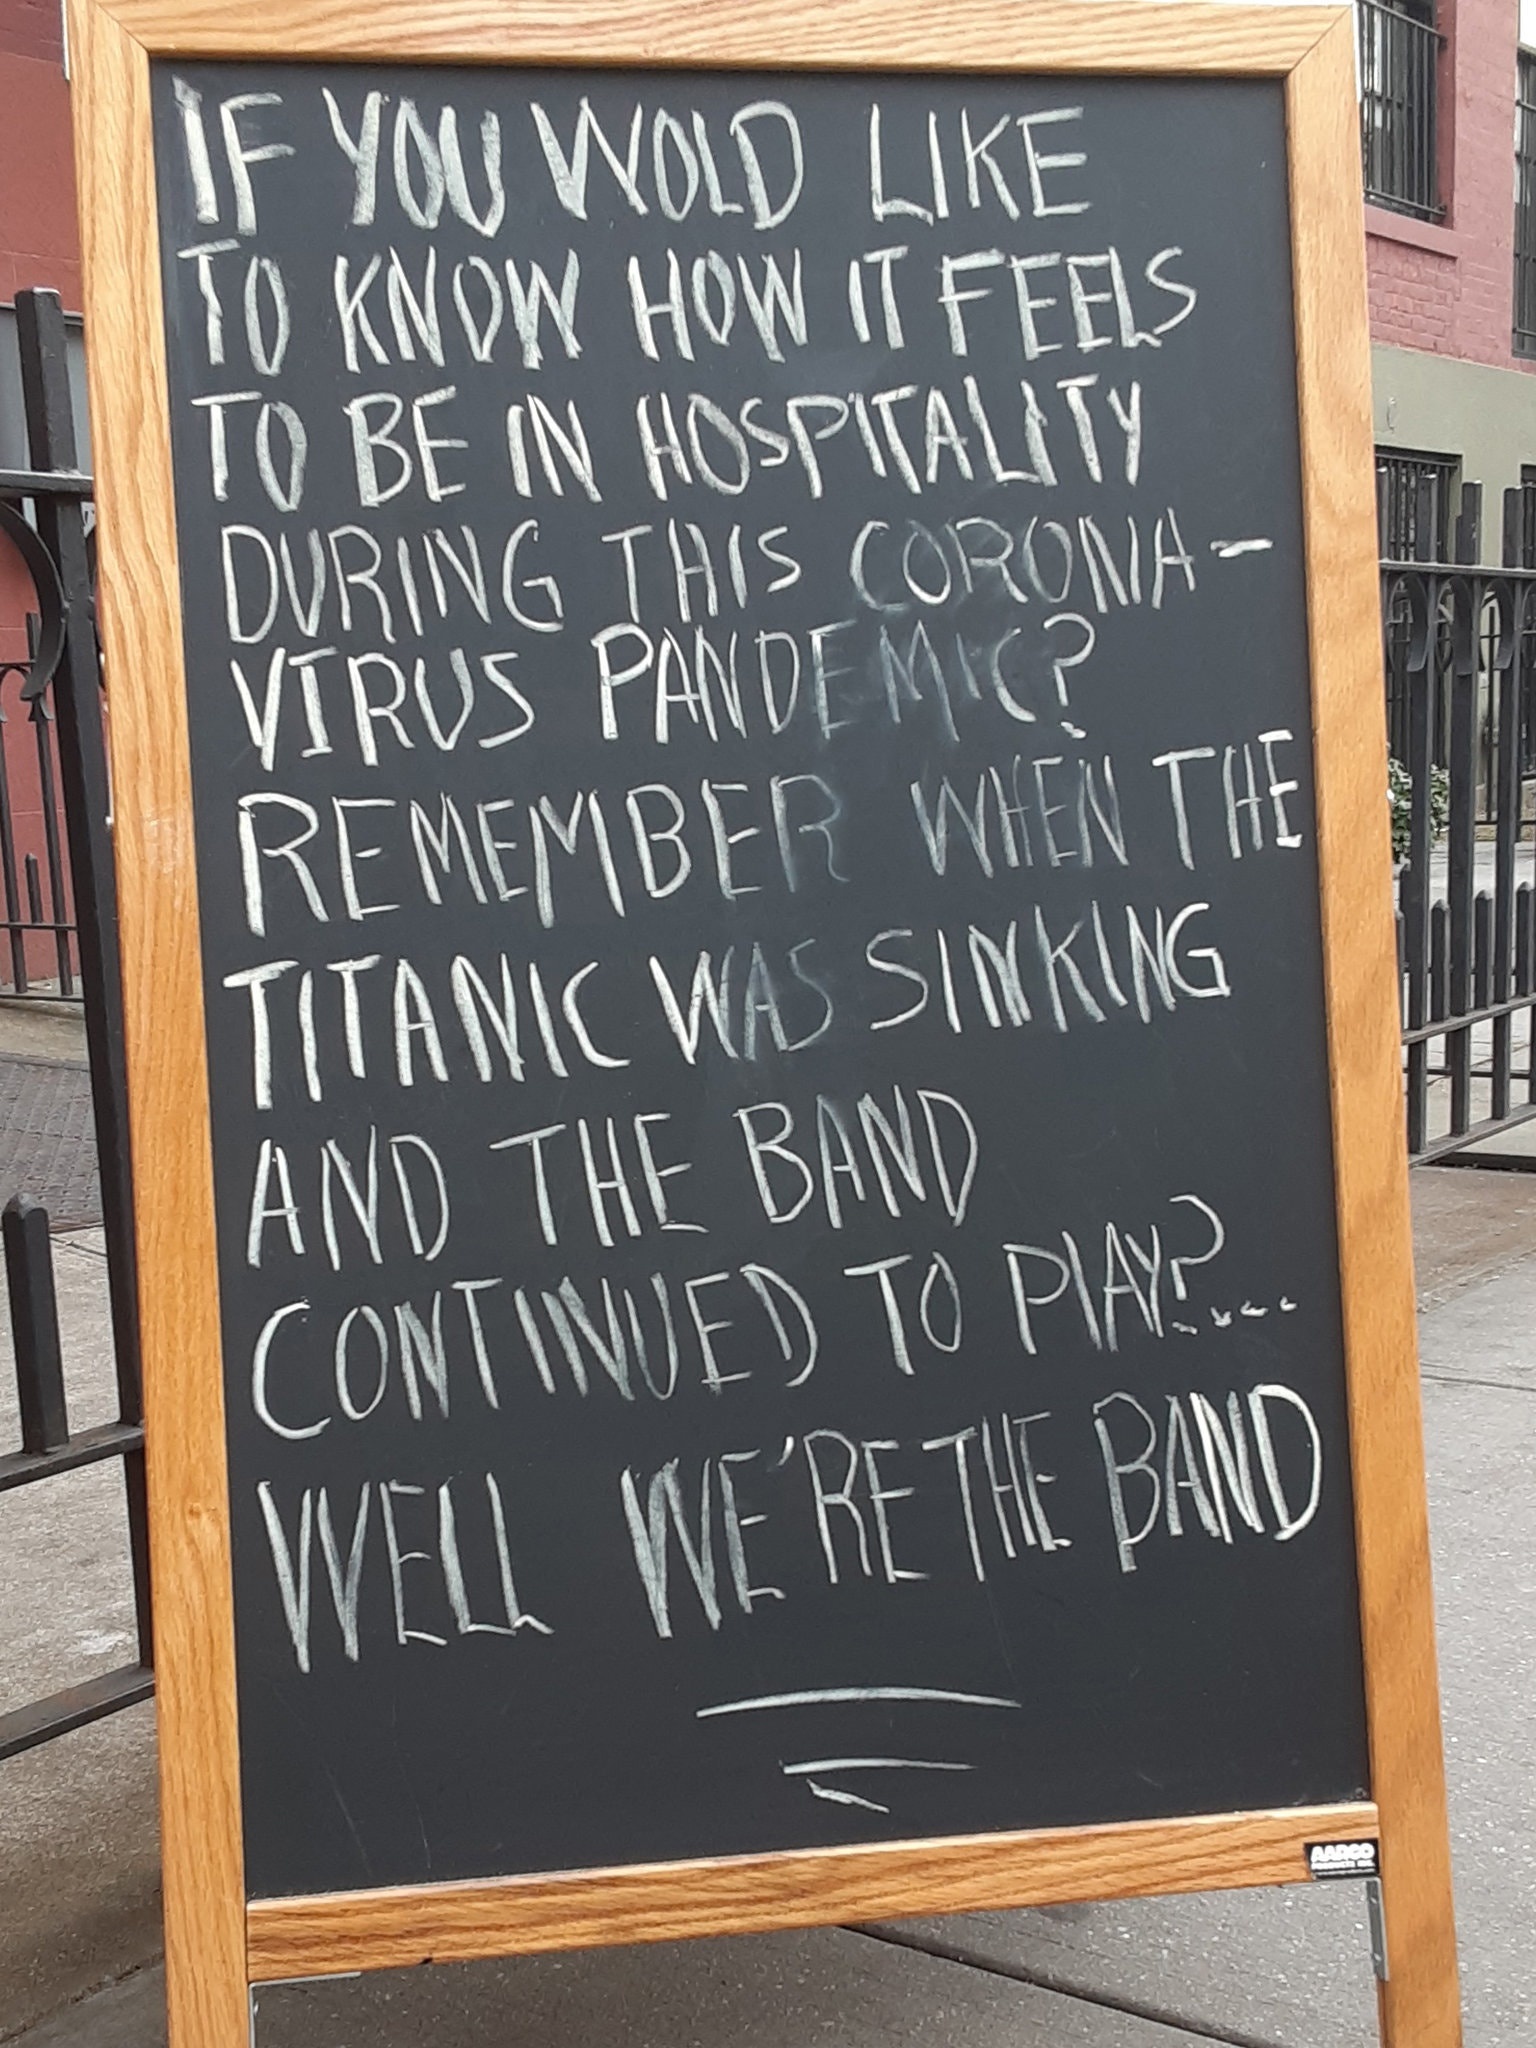 IF YOU WOLD LIKE
TO KNOW HOW IT FEELS
TO BE IN HOSPITALITY
DURING THIS CORONA-
VIRUS PANDEMIC?
REMEMBER WHEN THE
TITANIC WAS SINKING
AND THE BAND
CONTINUED TO PLAY?....
WELL WE'RE THE BAND
AARCO
PRODUCTS INC.